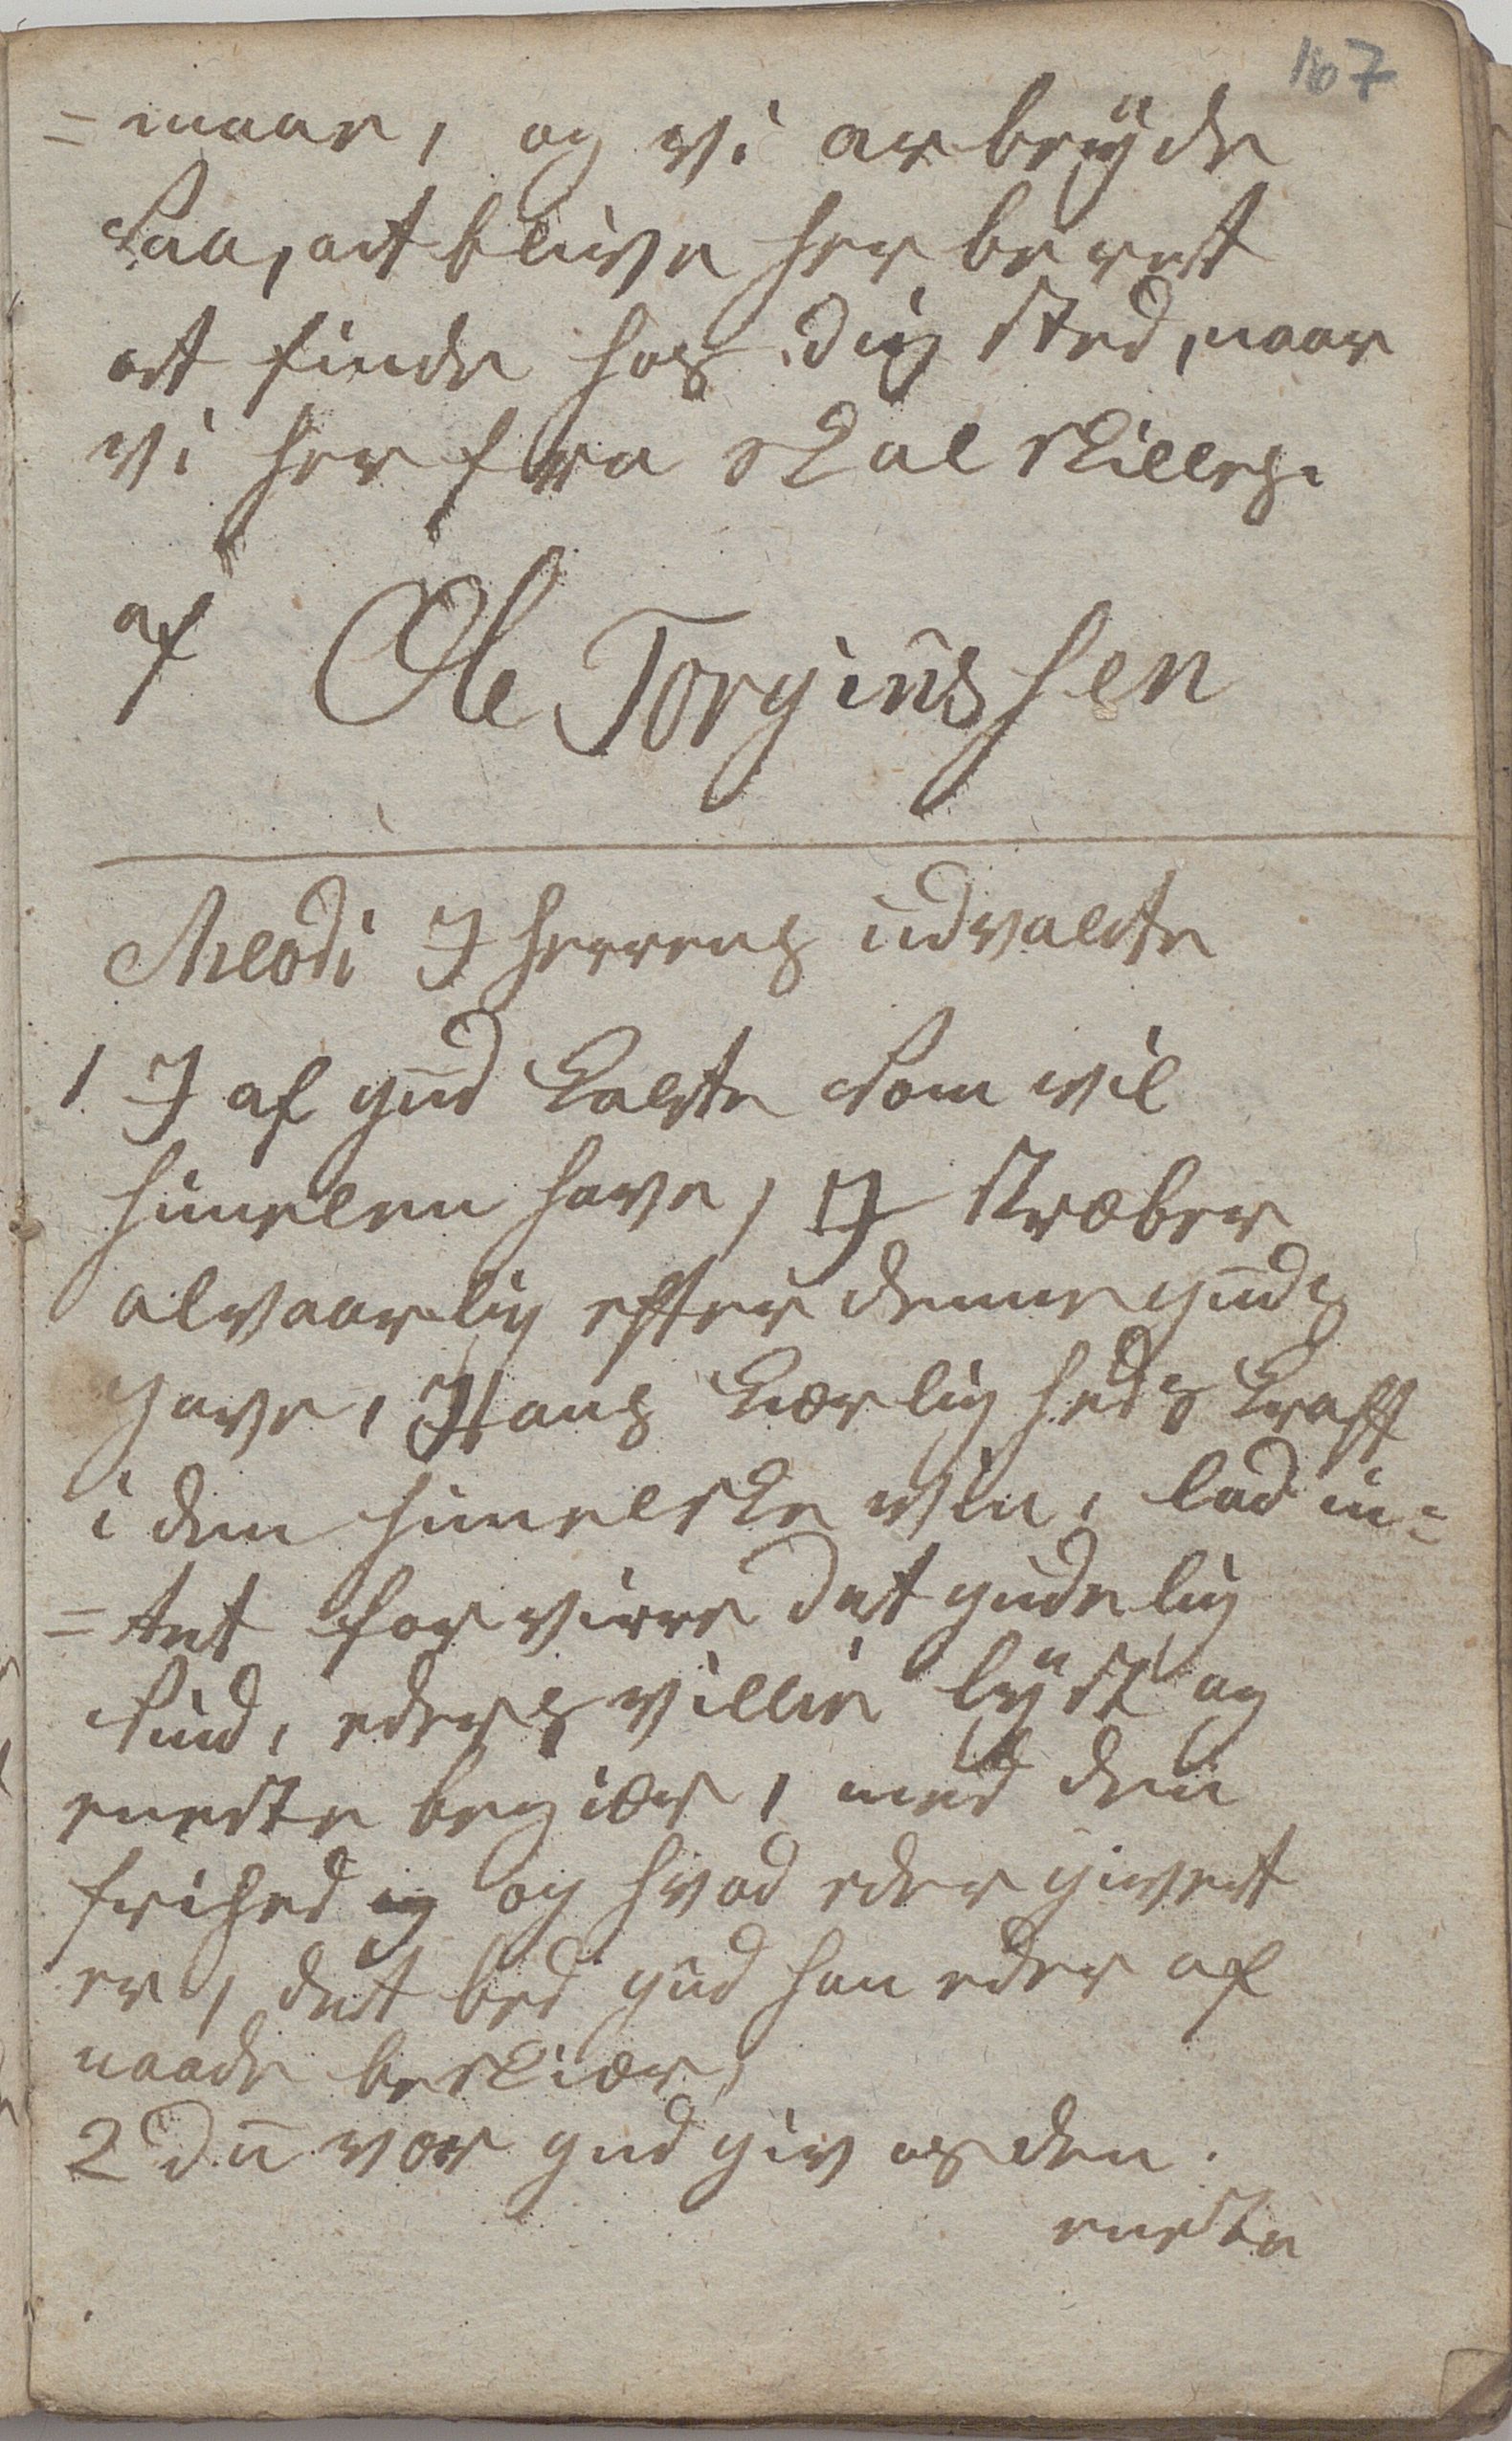 167
=maar, og vi arbeÿde
saa, at blive her beret
at finde hos dig sted, naar
vi her fra skal skilles.
af Ole Torginssen
Melodi I Herrens udvalte
1 I af gud kalte som vil
himelen have, I stræber
alvaarlig efter denne guds
gave, I Hans kiærlig heds kraft
i den himelske vin, lad in=
=tet forvirre det gudelig
sind, eders villie lÿst og
eneste begiær, med den
frihed og hvad eder givet
er, det bed gud han eder af
naade beskiær,
2 Du vor gud giv os den
eneste